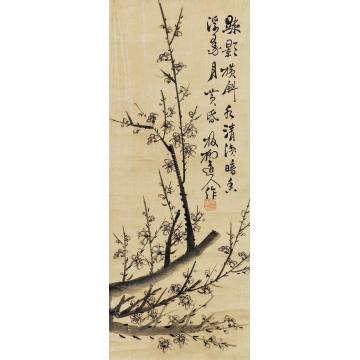 疎影横斜水清浅暗香
浮動月黄昏 道人作